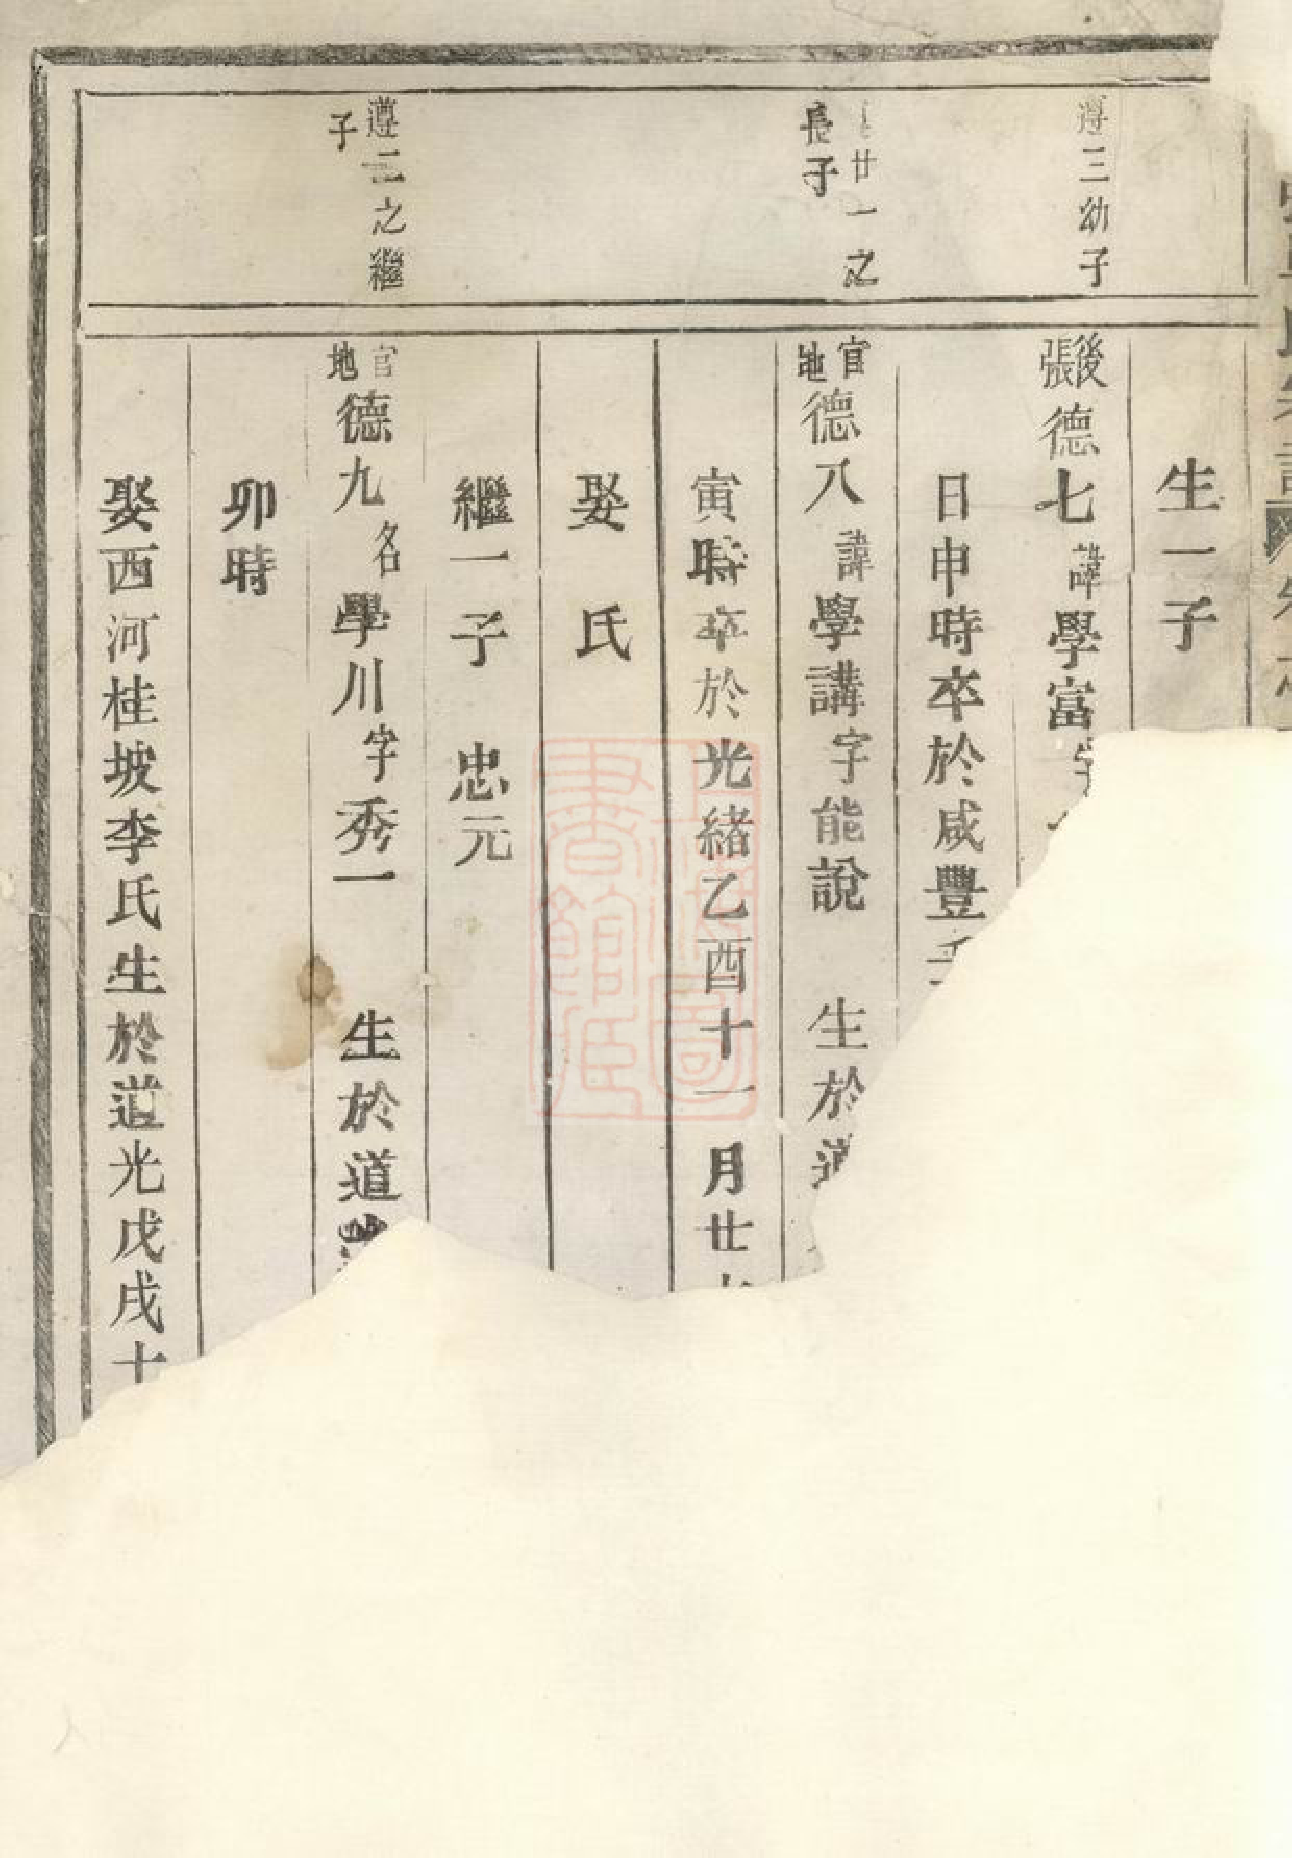 生一子
遵三幼子
後張德七諱學富字
日申時卒於咸豐
廿一之
長子
官地德八諱學講字能說 生於道
寅時卒於光緒乙酉十一月廿
娶 氏
繼一子 忠元
遵二之繼
子
官地德九名學川字秀一 生於道
卯時
娶西河桂坡李氏生於道光戊戌十
上海圖
書館藏